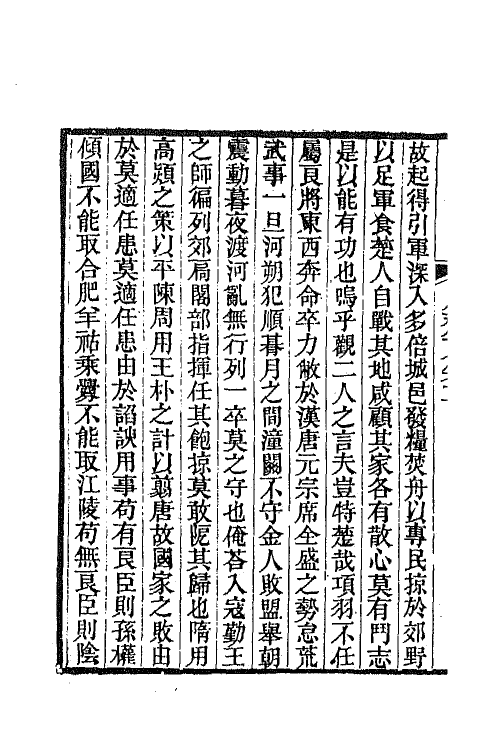 故起得引軍深入多倍城邑發糧焚舟以專民掠於郊野
以足軍食楚人自戰其地咸顧其家各有散心莫有鬥志
是以能有功也嗚乎觀二人之言夫豈特楚哉項羽不任
屬良將東西奔命卒力敝於漢唐元宗席全盛之勢怠荒
武事一旦河朔犯順暮月之間潼關不守金人敗盟舉朝
震動暮夜渡河亂無行列一卒莫之守也俺荅入寇勤王
之師徧列郊扄閣部指揮任其飽掠莫敢阸其歸也隋用
高熲之策以平陳周用王朴之計以翦唐故國家之敗由
於莫適任患莫適任患由於謟諛用事苟有良臣則孫權
傾國不能取合肥羊祜乘釁不能取江陵苟無良臣則陰